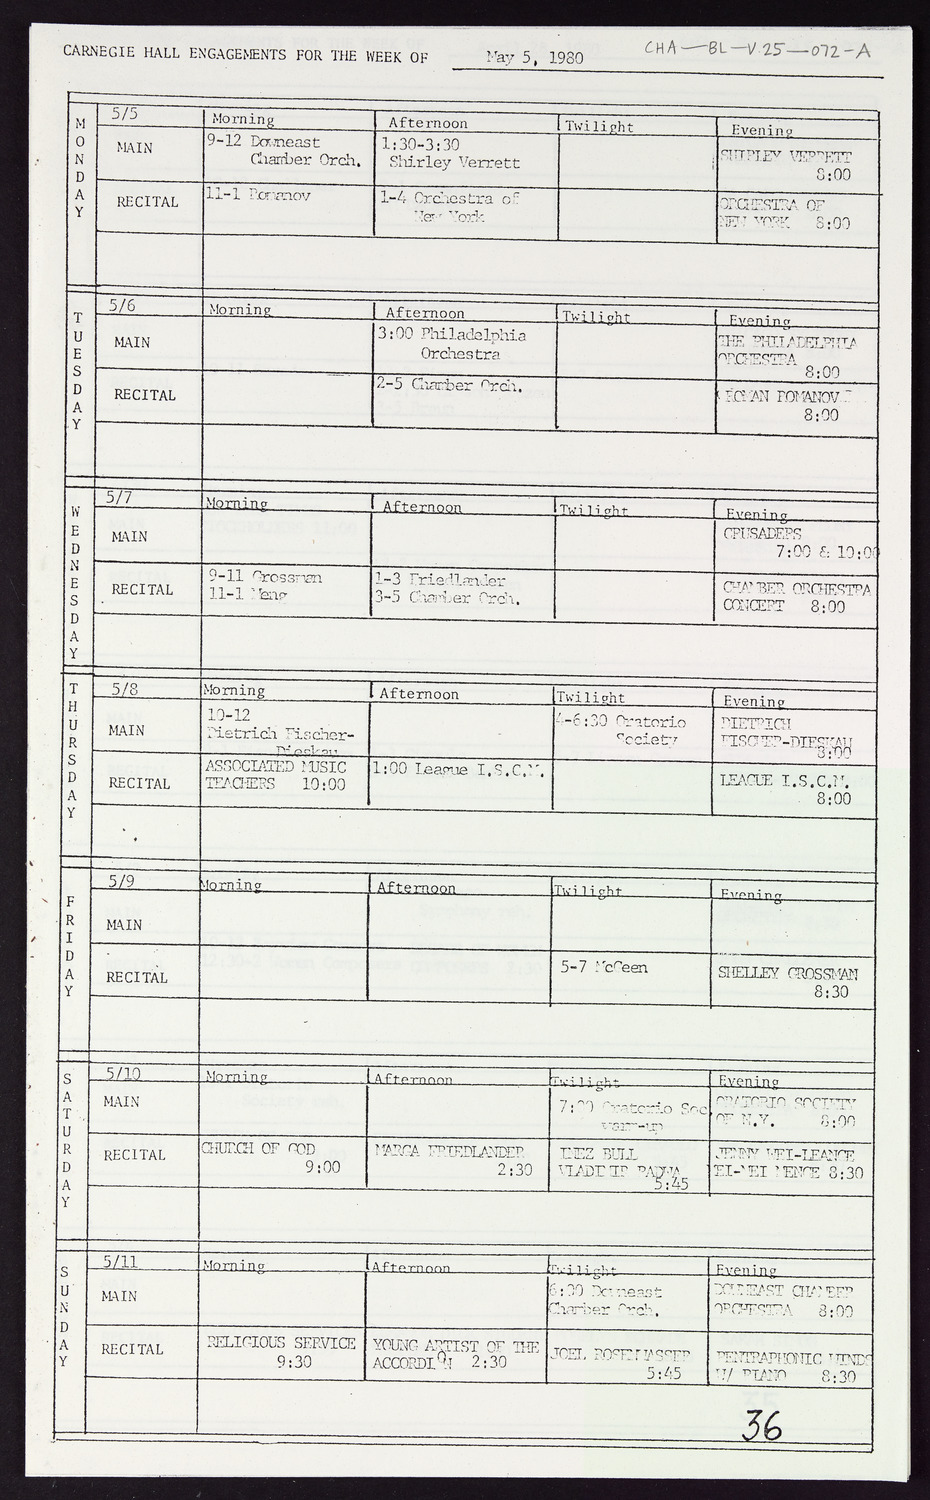 CARNEGIE HALL ENGAGEMENTS FOR THE WEEK OF May 5, 1980
CHA-BL-V.25-072-A
MONDAY
5/5 Morning Afternoon Twilight Evening
MAIN
9-12 Downeast
Chamber Orch.
1:30-3:30
Shirley Verrett
SHIRLEY VERRETT
8:00
RECITAL
11-1 Romanov
1-4 Orchestra of
New York
ORCHESTRA OF
NEW YORK 8:00
TUESDAY
5/6 Morning Afternoon Twilight Evening
MAIN
3:00 Philadelphia
Orchestra
THE PHILADELPHIA
ORCHESTRA
8:00
RECITAL
2-5 Chamber Orch.
ROMAN ROMANOV
8:00
WEDNESDAY
5/7 Morning Afternoon Twilight Evening
MAIN
CRUSADERS
7:00 & 10:00
RECITAL
9-11 Grossman
11-1
1-3 Friedlander
3-5 Chamber Orch.
CHAMBER ORCHESTRA
CONCERT 8:00
THURSDAY
5/8 Morning Afternoon Twilight Evening
MAIN
10-12
Dietrich Fischer-
Dieskau
4-6:30 Oratorio
Society
DIETRICH
FISCHER-DIESKAU
8:00
RECITAL
ASSOCIATED MUSIC
TEACHERS 10:00
1:00 League I.S.C.M.
LEAGUE I.S.C.M.
8:00
FRIDAY
5/9 Morning Afternoon Twilight Evening
MAIN
RECITAL
5-7
SHELLEY GROSSMAN
8:30
SATURDAY
5/10 Morning Afternoon Twilight Evening
MAIN
7:00 Oratorio Soc
warm-up
ORATORIO SOCIETY
OF N.Y. 8:00
RECITAL
CHURCH OF GOD
9:00
MARCA FRIEDLANDER
2:30
INEZ BULL
VLADIMIR PADWA
5:45
JENNY
8:30
SUNDAY
5/11 Morning Afternoon Twilight Evening
MAIN
6:00 Downeast
Chamber Orch.
DOWNEAST CHAMBER
ORCHESTRA 8:00
RECITAL
RELIGIOUS SERVICE
9:30
YOUNG ARTIST OF THE
ACCORDION 2:30
JOEL ROSENWASSER
5:45
PENTRAPHONIC WINDS
W/ PIANO 8:30
36